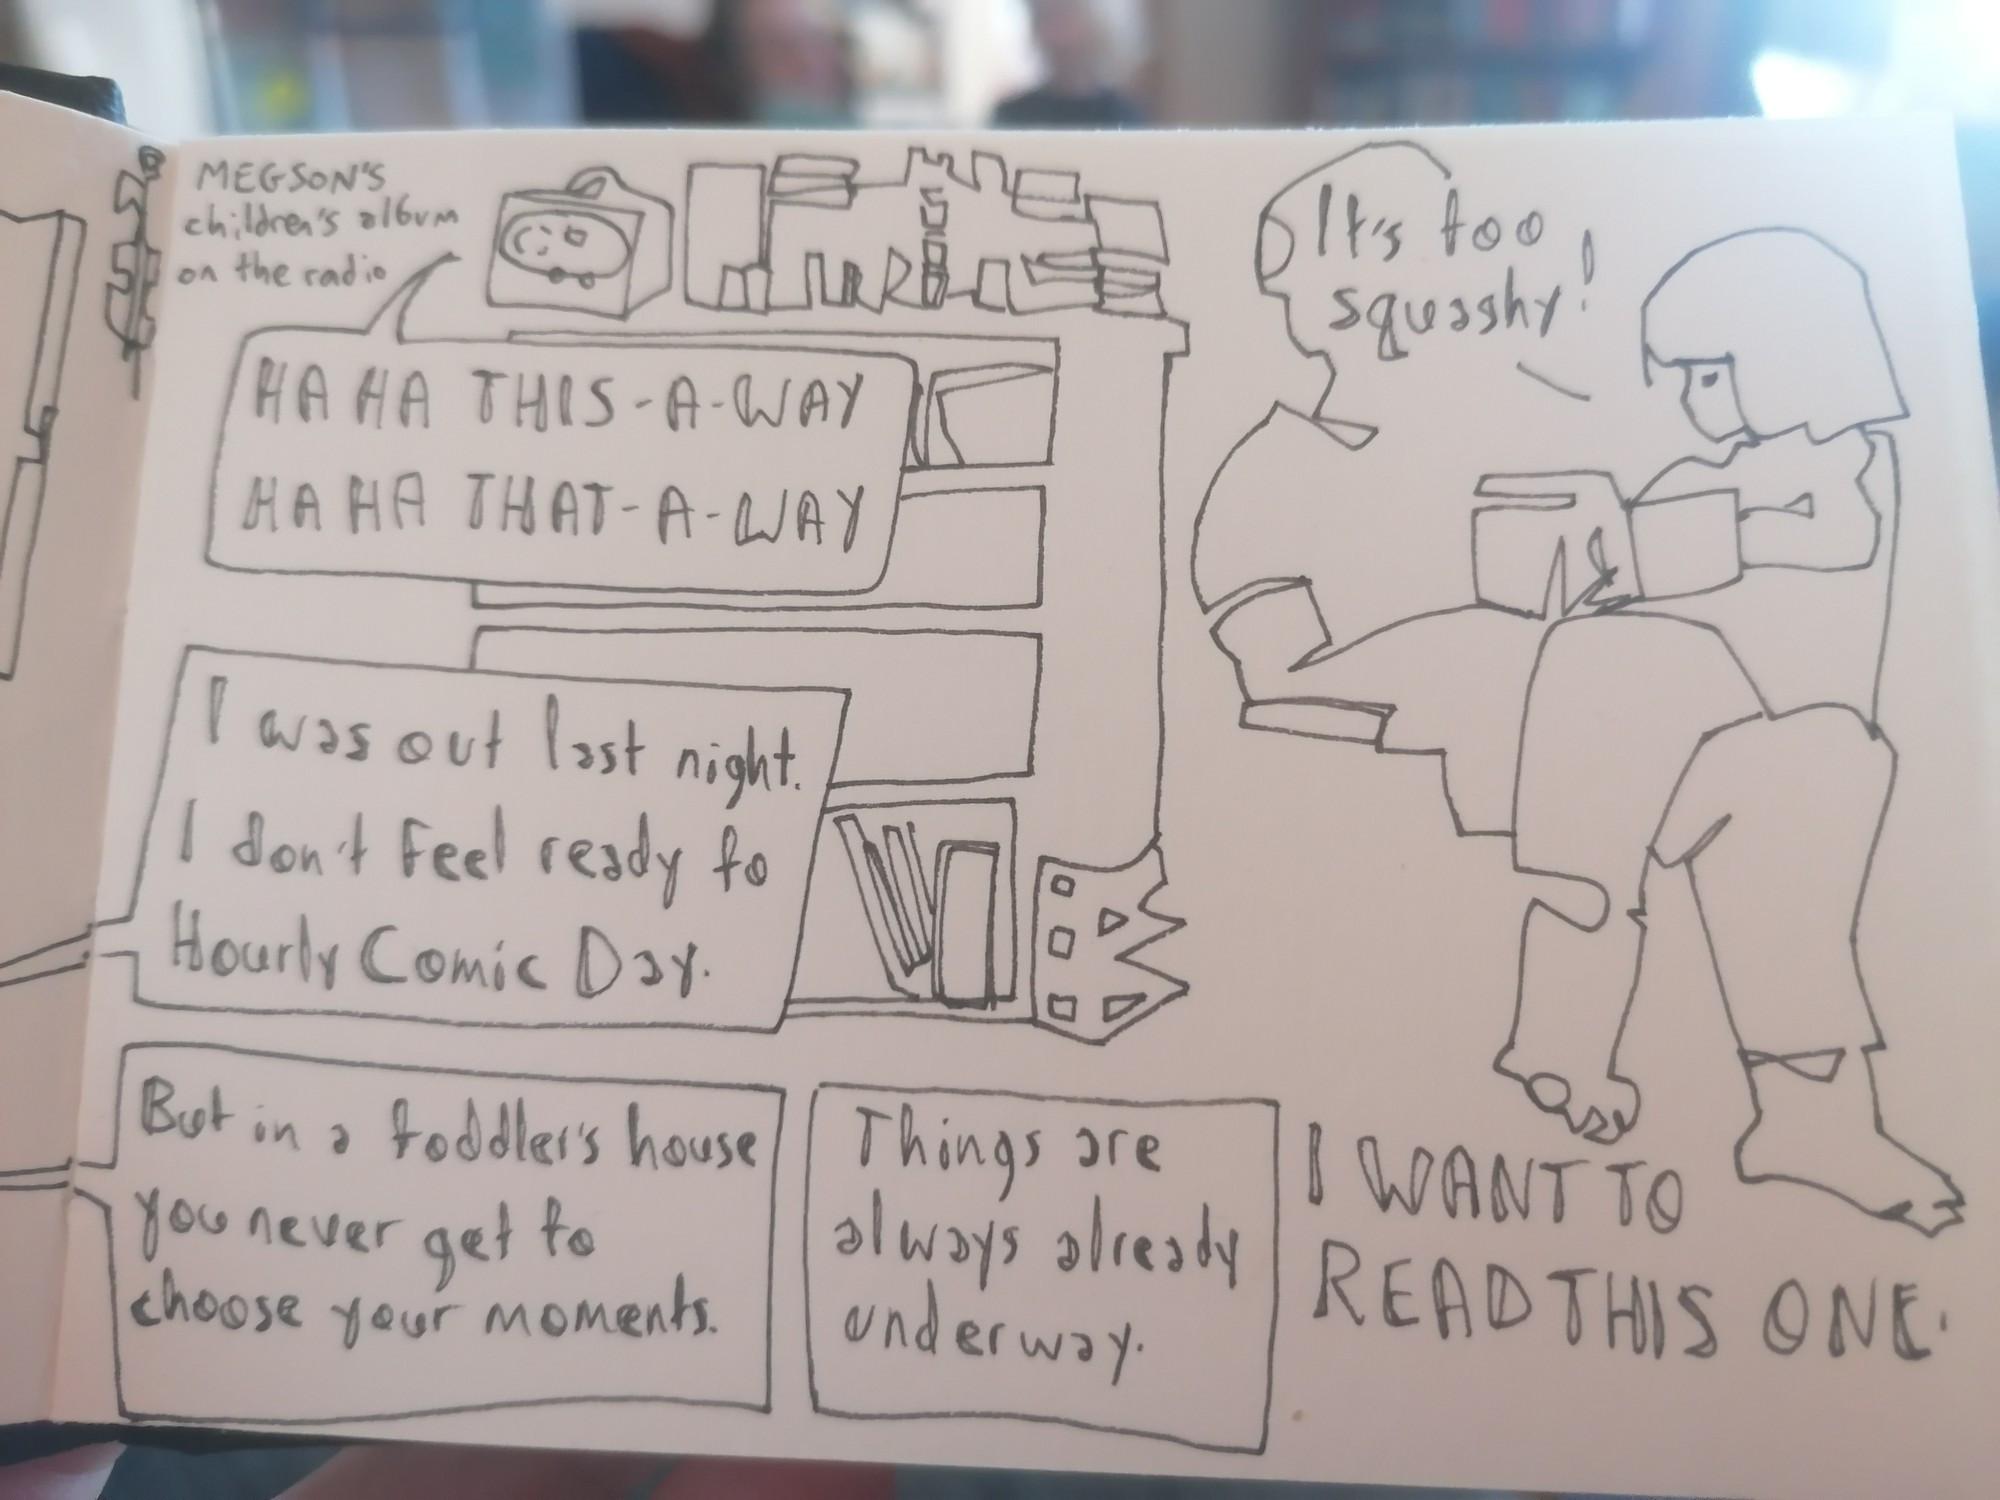 MEGSON'S
children's album
on the radio
HA HA THIS-A-WAY
HA HA THAT-A-WAY
It's too
squashy!
I was out last night.
I don't feel ready to
Hourly Comic Day.
But in a toddler's house
you never get to
choose your moments.
Things are
always already
underway.
I WANT TO
READ THIS ONE.